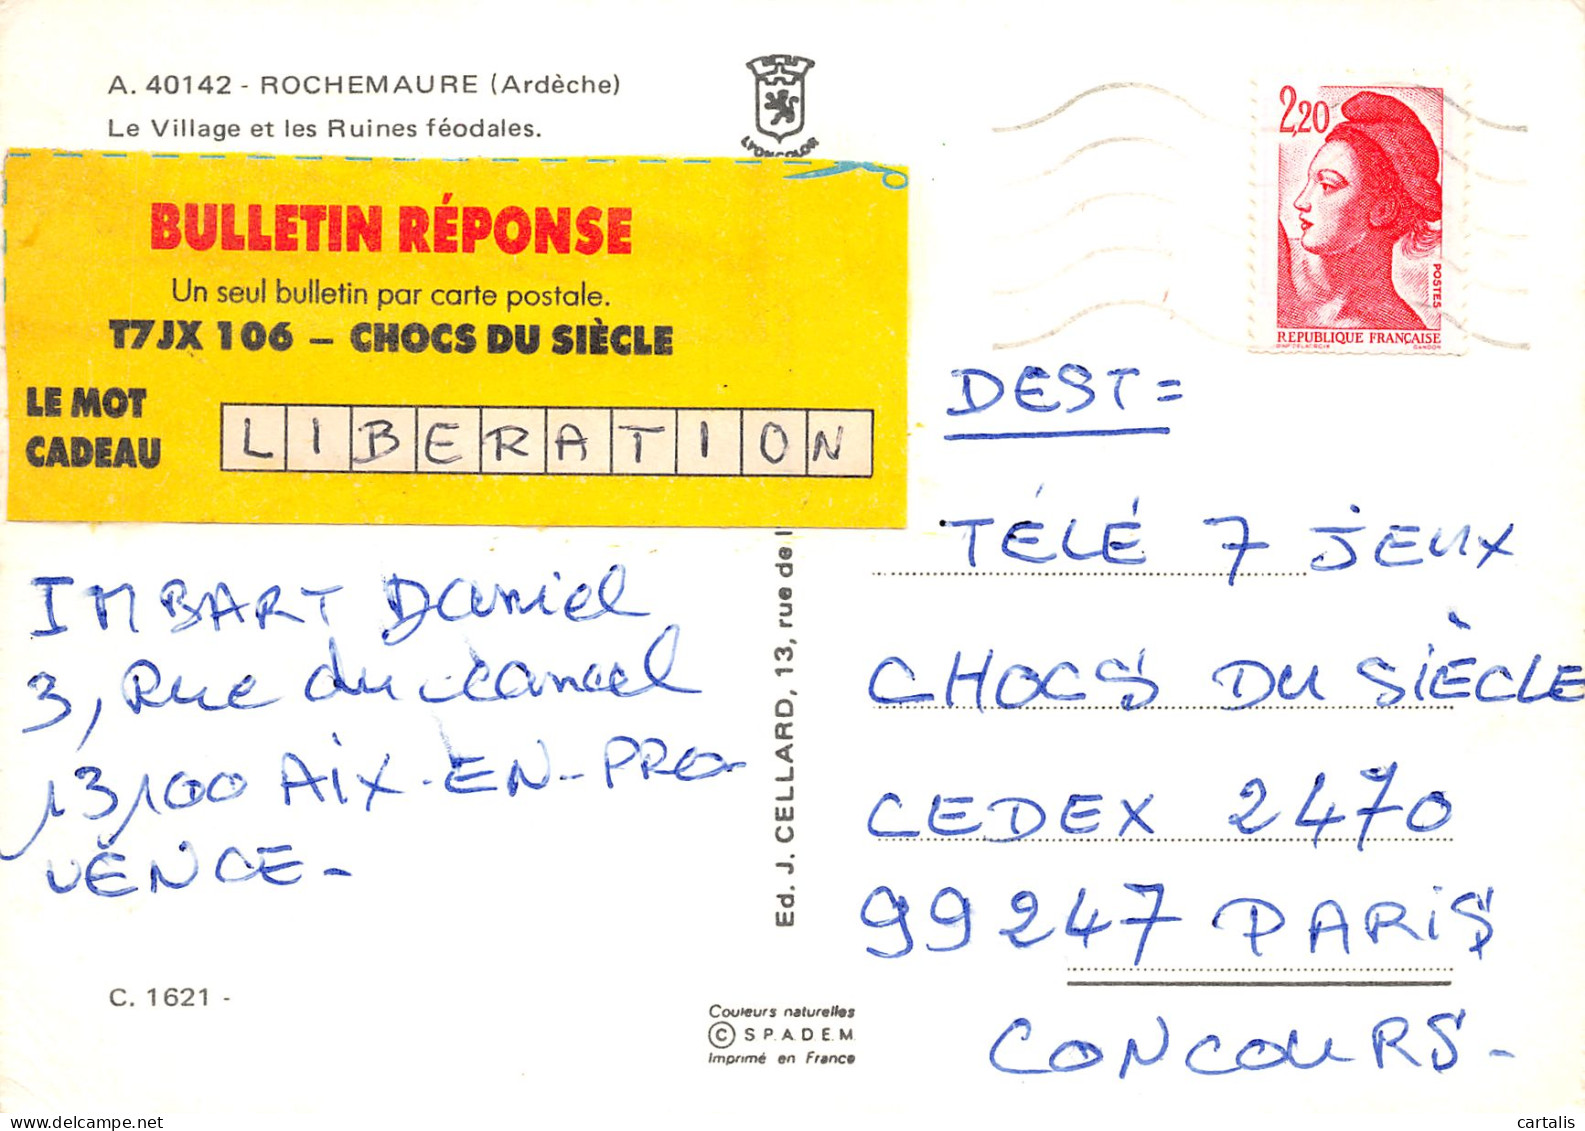 A. 40142 - ROCHEMAURE (Ardèche)
Le Village et les Ruines féodales.
LYONCOLOR
2,20
POSTES
REPUBLIQUE FRANÇAISE
BULLETIN RÉPONSE
Un seul bulletin par carte postale.
T7JX 106 – CHOCS DU SIÈCLE
LE MOT
CADEAU
LIBERATION
IMBART Daniel
3, Rue du
13100 AIX-EN-PRO-
VENCE -
C. 1621 -
Ed. J. CELLARD, 13, rue de l
Couleurs naturelles
© S.P.A.D.E.M.
Imprimé en France
DEST =
TÉLÉ 7 JEUX
CHOCS DU SIÈCLE
CEDEX 2470
99247 PARIS
CONCOURS -
cartalis